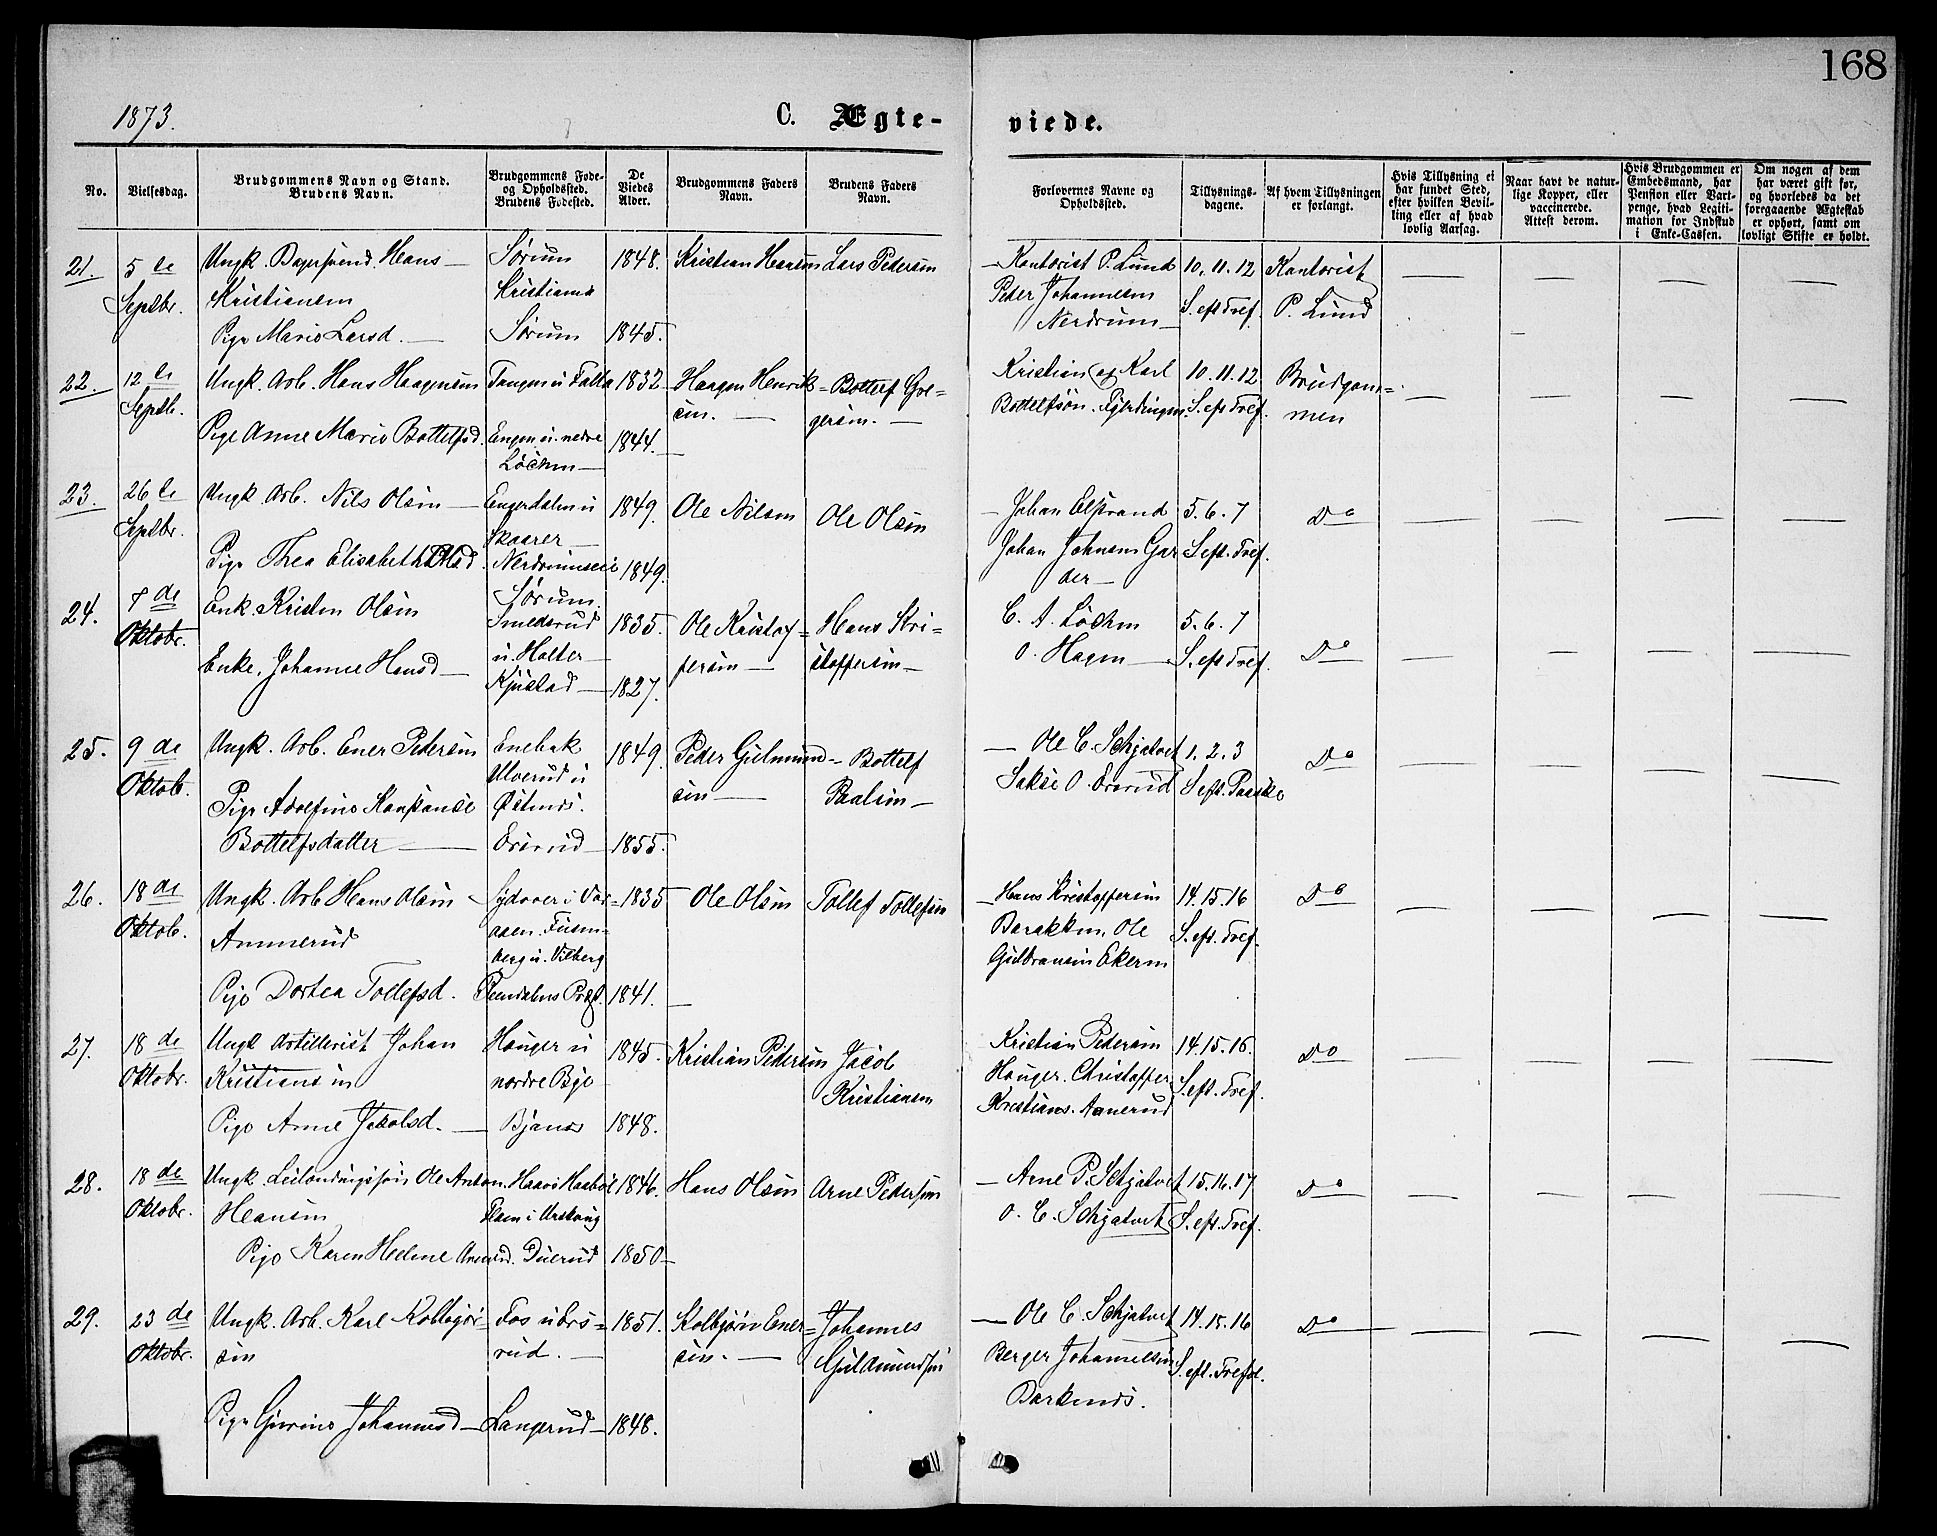 168
1873.
C. Ægte-
viede.
No.
Vielsesdag.
Brudgommens Navn og Stand.
Brudens Navn.
Brudgommens Føde-
og Opholdssted.
Brudens Fødested.
De
Viedes
Alder.
Brudgommens Faders
Navn.
Brudens Faders
Navn.
Forlovernes Navne og
Opholdssted.
Tillysnings-
dagene.
Af hvem Tillysningen
er forlangt.
Hvis Tillysning ei
har fundet Sted,
efter hvilken Bevil-
ling eller af hvad
lovlig Aarsag.
Naar havt de natur-
lige Kopper, eller
vaccinerede.
Attest derom.
Hvis Brudgommen er
Embedsmand, har
Pension eller Vart-
penge, hvad Legiti-
mation for Indskud
i Enke-Cassen.
Om nogen af dem
har været gift før,
og hvorledes da det
foregaaende Ægteskab
er ophørt, samt om
lovligt Skifte er holdt.
21. 5te Septbr.
Ungk. Bagersvend Hans
Kristiansen
Pige Marie Larsd.
Sørum
Kristiania
Sørum
1848.
1845.
Kristian Hansen
Lars Pedersen
Kantorist P. Lund
Peder Johannesen
Nerdrum
10. 11. 12
S. eft Tref.
Kantorist
P. Lund
22. 12te Septb.
Ungk. Arb. Hans Haagensen
Pige Anne Marie Bottelfsd.
Tangen u Falla
Engen u. nedre
Løchen
1832
1844.
Haagen Henrik-
sen.
Bottelf Gre-
gersen.
Kristian og Karl
Bottelfsøn. Fjerdingen.
10. 11. 12
S. eft Tref.
Brudgom-
men
23. 26te Septbr.
Ungk. Arb. Nils Olsen
Pige Thea Elisabeth Olsd.
Engerdalen u
Skaarer
Nerdrumseie
1849.
1849.
Ole Nilsen
Ole Olsen
Johan Elstrand
Johan Johnsen Gar
der
5. 6. 7
S. eft. Tref.
Do
24. 7de Oktobr.
Enk. Kristen Olsen
Enke, Johanne Hansd
Sørum.
Smedsrud
u. Halter
Kjustad
1835.
1827.
Ole Kristof-
fersen
Hans Kri-
stoffersen
C. A. Løchen
O. Hagen
5. 6. 7
S. eft Tref.
Do
25. 9de Oktob.
Ungk. Arb. Ener Pedersen
Bottelfsdatter
Enebak
Ulverud u
1849.
1855.
Peder Gulmund-
sen
Bottelf
Paalsen
Ole C. Schjatvet
1. 2. 3
S. eft. Paaske
Do
26. 18de Oktob.
Ungk. Arb Hans Olsen
Ammerud
Pige Dortea Tollefsd.
berg u. Vilberg
1835
1841.
Ole Olsen
Tollef Tollefsen
Hans Kristoffersen
Barakken. Ole
Gulbransen Ekeren
14. 15. 16
S. eft. Tref.
Do
27. 18de Oktobr.
Ungk Artillerist Johan
Kristiansen
Pige Anne Jakobsd.
Hauger u
nordre Bye
Bjanes
1845.
1848.
Kristian Pedersen
Jacob
Kristiansen
Kristian Pedersen
Hauger. Christoffer
Kristians. Aanerud
14. 15. 16.
S. eft. Tref.
Do
28. 18de Oktobr.
Ungk. Leilændingssøn Ole Anton
Hansen
Pige Karen Helene Arnesd.
i Urskoug
Duerud
1846.
1850
Hans Olsen
Arne Pedersen
Arne P. Schjatvet
O. C. Schjatvet
15. 16. 17
S. eft. Tref.
Do
29. 23de Oktobr.
Ungk. Arb. Karl Kolbjør-
sen
Pige Gurine Johannesd
Fos u Ers-
rud.
Langerud
1851.
1848.
Kolbjørn Ener-
sen.
Johannes
Guldmundsen
Ole C. Schjatvet
Berger Johannesen
Barknes.
14. 15. 16
S. eft. Trefol.
Do